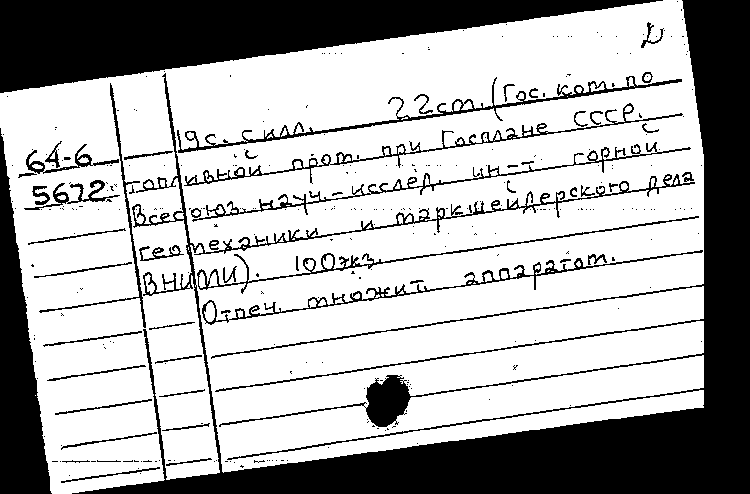 2
19с. с илл. 22см. (Гос. ком. по
64-6 топливной пром. при Госплане СССР.
5672 Всесоюз. науч.-исслед. ин-т горной
геомеханики и маркшейдерского дела
ВНИМИ). 100экз.
Отпеч. множит. аппаратом.